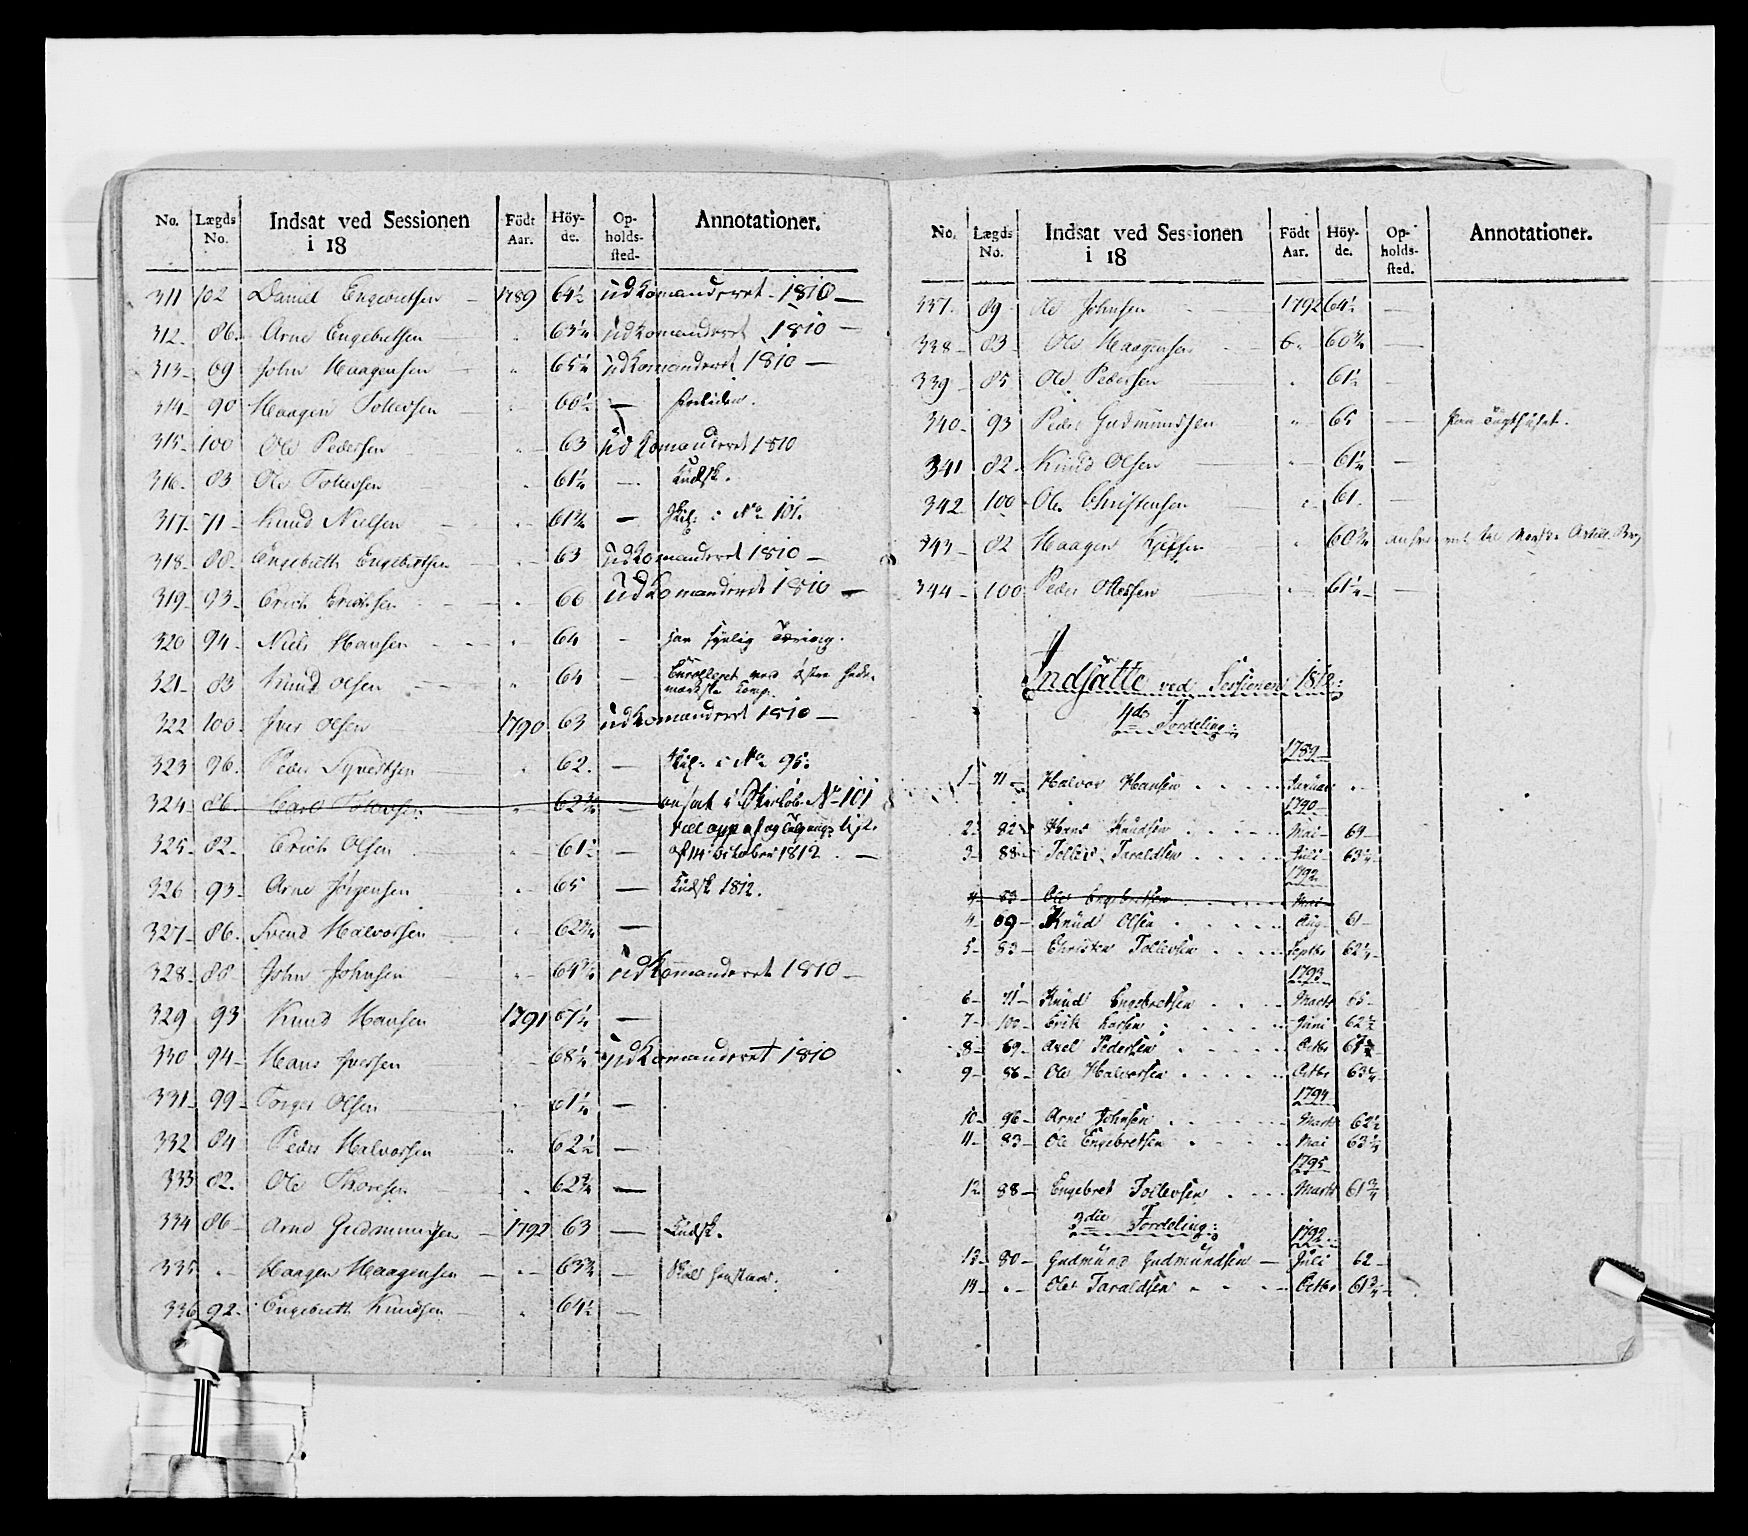 No. Lægds No. Indsat ved Sessionen i 18 Födt Aar. Höyde. Opholdssted. Annotationer.
311 102 Daniel Engebretsen 1789 64½ udkomanderet 1810
312 86 Arne Engebretsen 63¼ udkomanderet 1810
313 69 John Haagensen 65¼ udkomanderet 1810
314 90 Haagen Tollefsen 60½
315 100 Ole Pedersen 63 udkomanderet 1810
316 83 Ole Tollefsen 61¼ Kudsk.
317 71 Knud Nielsen 61¾ No 101.
318 88 Engebreth Engebretsen 63 udkomanderet 1810
319 93 Erich Erichsen 66 udkomanderet 1810
320 94 Niels Hansen 64 har synlig Tæring.
321 83 Knud Olsen 64 Enrolleret ved østre Hedemarkske Comp.
322 100 Iver Olsen 1790 63 udkomanderet 1810
323 96 Peder Syvertsen 62 No 95.
324 86 62¾ ansat i Skieløb No 101
325 82 Erich Olsen 61½ af 14 October 1812
326 93 Arne Jørgensen 65 Kudsk 1812.
327 86 Svend Halvorsen 62¾
328 85 John Johnsen 64¾ udkomanderet 1810
329 93 Knud Hansen 1791 67¼
330 94 Hans Iversen 68¼ udkomanderet 1810
331 99 Torger Olsen 61¼
332 84 Peder Halvorsen 62½
333 82 Ole Thoresen 62¾
334 86 Arne Gudmundsen 1792 63 Kudsk.
335 Haagen Haagensen 63¾
336 92 Engebreth Knudsen 64½
No. Lægds No. Indsat ved Sessionen i 18 Födt Aar. Höyde. Opholdssted. Annotationer.
337 89 Ole Johnsen 1792 64½
338 83 Ole Haagensen 60¾
339 85 Ole Pedersen 61½
340 93 Peder Gudmundsen 65 paa Tugthuset.
341 82 Knud Olsen 61¼
342 100 Ole Christensen 61
343 82 Haagen 60¾
344 100 Peder Ottersen 61¼
Indsatte ved Sessionen 1812:
4de Fordeling:
1789
1 71 Halvor Hansen Januar
1790
2 82 Hans Knudsen Mai 69
3 88 Tollev Taraldsen Juli 63¼
1792
4 83 Ole Engebretsen Mai
4 69 Knud Olsen Aug 61
5 83 Christen Tollevsen Septbr 62¼
1793
6 71 Knud Engebretsen Marts 65
7 100 Erik Larsen Juni 62½
8 69 Axel Pedersen Octbr 61¾
9 86 Ole Halvorsen Octbr 63¼
1794
10 96 Arne Johnsen Marts 62½
11 83 Ole Engebretsen Mai 63¼
1795
12 88 Engebret Tollevsen Marts 61¾
3die Fordeling:
1792
13 80 Gudmund Gudmundsen Juli 62
14 Ole Taraldsen Octbr 61¾